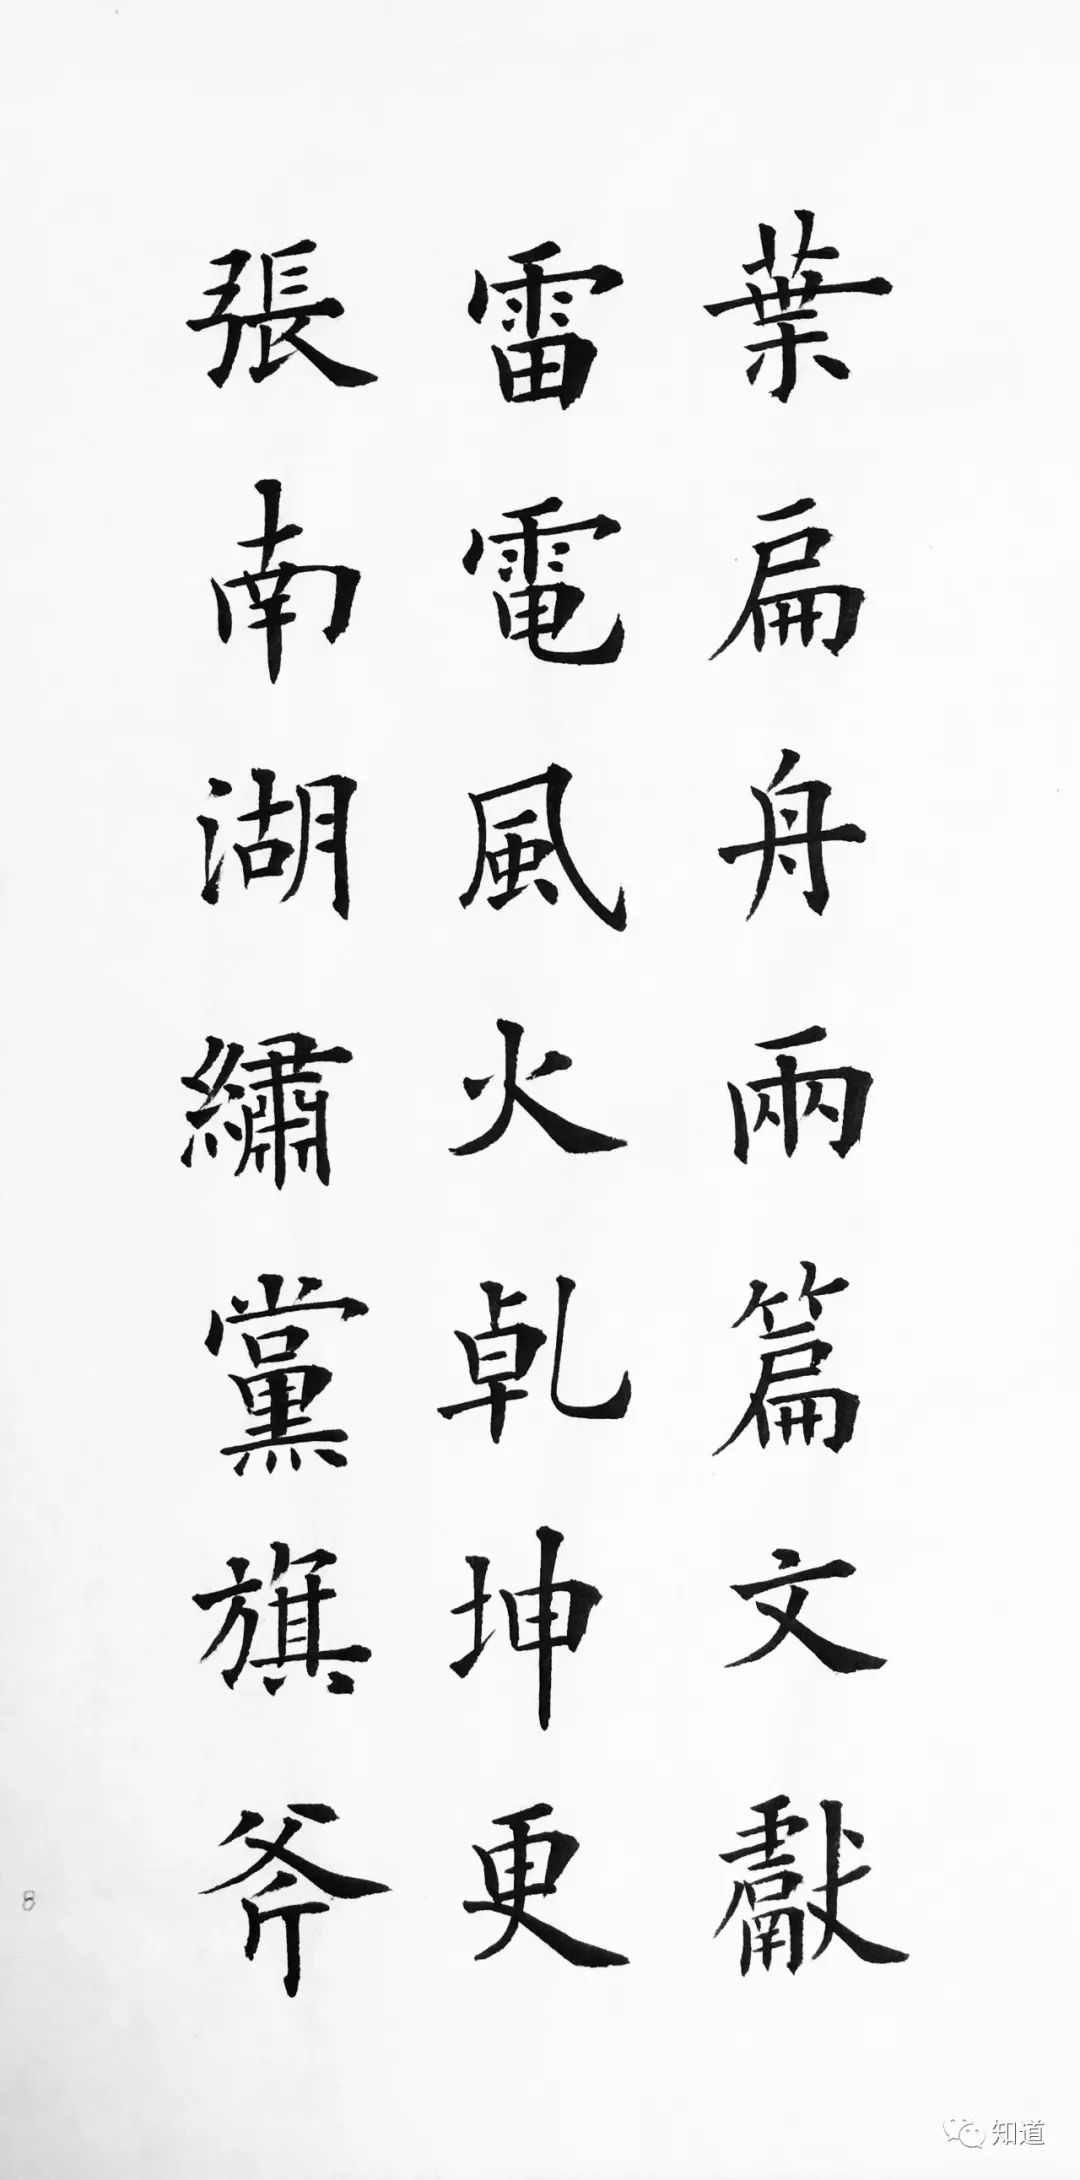 葉扁舟兩篇文獻
雷電風火乹坤更
張南湖繡黨旗斧
8
知道